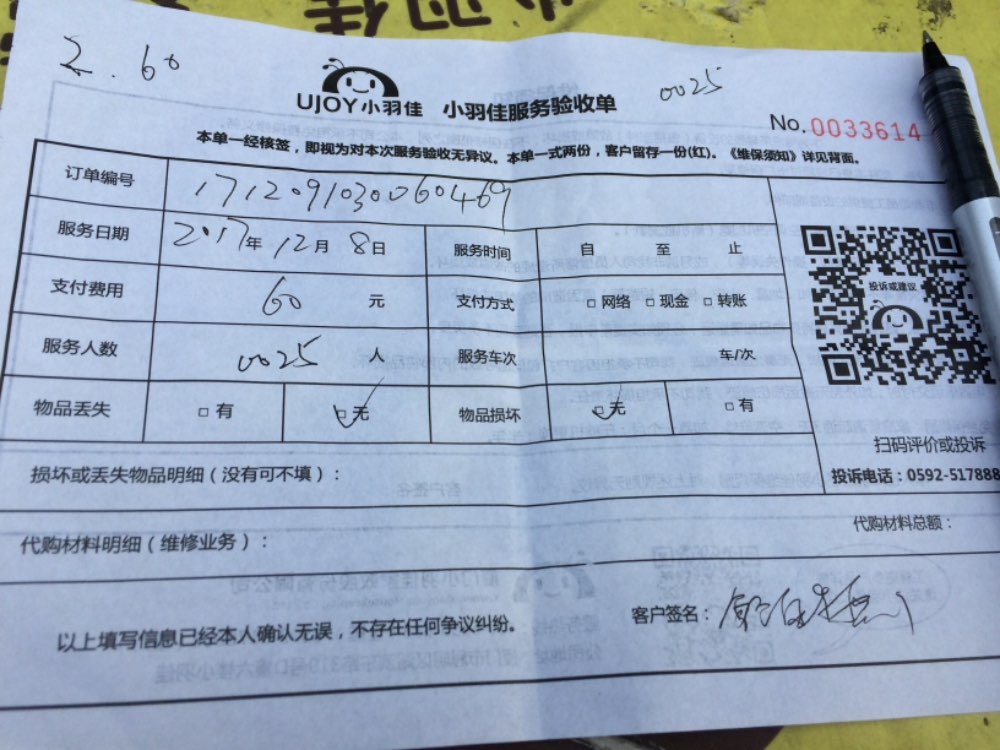 小羽佳
2.60
UJOY小羽佳 小羽佳服务验收单 0025
No.0033614
本单一经核签，即视为对本次服务验收无异议。本单一式两份，客户留存一份(红)。《维保须知》详见背面。
订单编号 1712091030060469
服务日期 2017年 12月 8日 服务时间 自 至 止
支付费用 60 元 支付方式 □网络 □现金 □转账
服务人数 0025 人 服务车次 车/次
物品丢失 □有 ☑无 物品损坏 ☑无 □有
投诉或建议
扫码评价或投诉
投诉电话：0592-517888
损坏或丢失物品明细（没有可不填）：
代购材料明细（维修业务）： 代购材料总额：
以上填写信息已经本人确认无误，不存在任何争议纠纷。 客户签名：